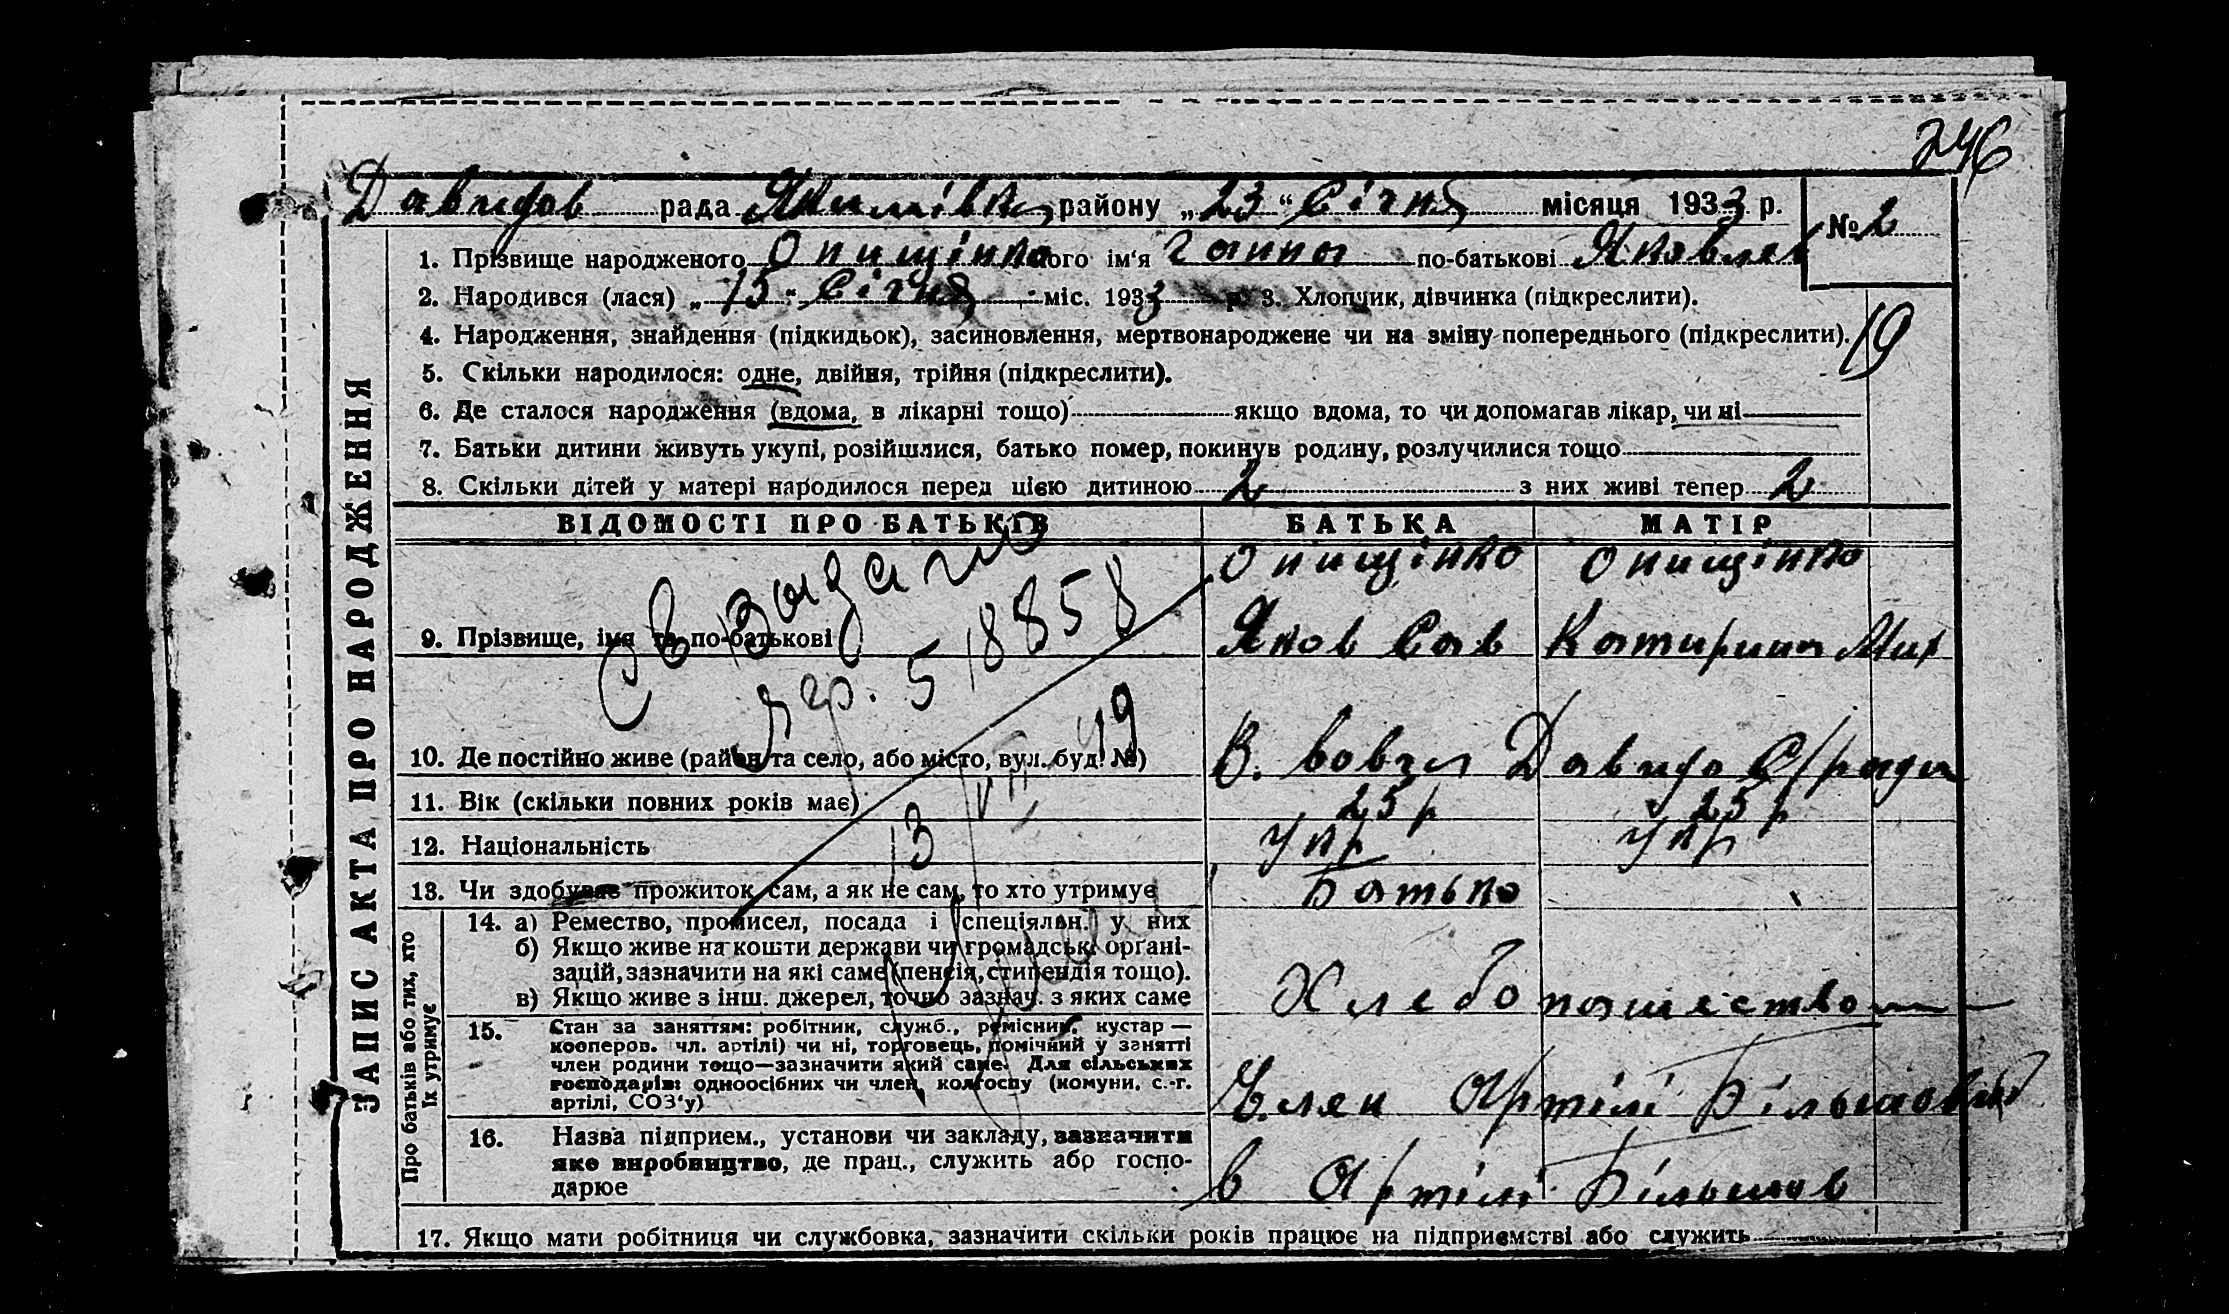 246
Давидов рада Якимівка району „23“ Січня місяця 1933 р. № 2
1. Прізвище народженого Онищінко його ім'я Ганна по-батькові Яковлев
2. Народився (лася) „15“ Січня міс. 1933 р. 3. Хлопчик, дівчинка (підкреслити).
4. Народження, знайдення (підкидьок), засиновлення, мертвонароджене чи на зміну попереднього (підкреслити).
19
5. Скільки народилося: одне, двійня, трійня (підкреслити).
6. Де сталося народження (вдома, в лікарні тощо) якщо вдома, то чи допомагав лікар, чи ні
7. Батьки дитини живуть укупі, розійшлися, батько помер, покинув родину, розлучилися тощо
8. Скільки дітей у матері народилося перед цією дитиною 2 з них живі тепер 2
ЗАПИС АКТА ПРО НАРОДЖЕННЯ
ВІДОМОСТІ ПРО БАТЬКІВ БАТЬКА МАТІР
Онищінко Онищінко
9. Прізвище, імя та по-батькові Яков Сав Катирина Мих
518858
10. Де постійно живе (район та село, або місто, вул. буд. №) Давидо С/ради
11. Вік (скільки повних років має) 25 р 25 р
12. Національність Укр Укр
13. Чи здобуває прожиток сам, а як не сам, то хто утримує Батько
Про батьків або тих, хто їх утримує
14. а) Ремество, промисел, посада і спеціяльн. у них
б) Якщо живе на кошти держави чи громадськ. орґані-
зацій, зазначити на які саме (пенсія, стипендія тощо).
в) Якщо живе з інш. джерел, точно зазнач. з яких саме Хлебопашество
15. Стан за заняттям: робітник, служб., ремісник, кустар —
кооперов. чл. артілі) чи ні, торговець, помічний у занятті
член родини тощо—зазначити який саме. Для сільських
господарів: одноосібних чи член колгоспу (комуни, с.-г.
артілі, СОЗ'у) Член Артілі Більшовик
16. Назва підприєм., установи чи закладу, зазначити
яке виробництво, де прац., служить або госпо-
дарює в Артілі Більшов
17. Якщо мати робітниця чи службовка, зазначити скільки років працює на підприємстві або служить